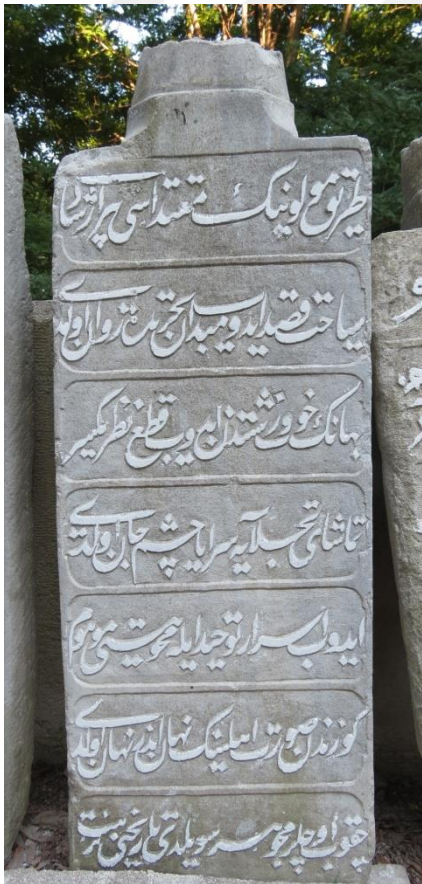 طریق مولوینك مقتداسی پیر ارشادی
سیاحت قصد ایدوب میدان تجریده روان اولدی
جهانك خوب و زشتندن ایدوب قطع نظر یكسر
تماشای تجلایه سراپا چشم جان اولدی
ایدوب اسرار توحید ایله محو هستئ موهوم
كوزندن صورت اهلینك نهان اندر نهان اولدی
چقوب اوچلر مجوهر سویلدی تاریخنی زینت